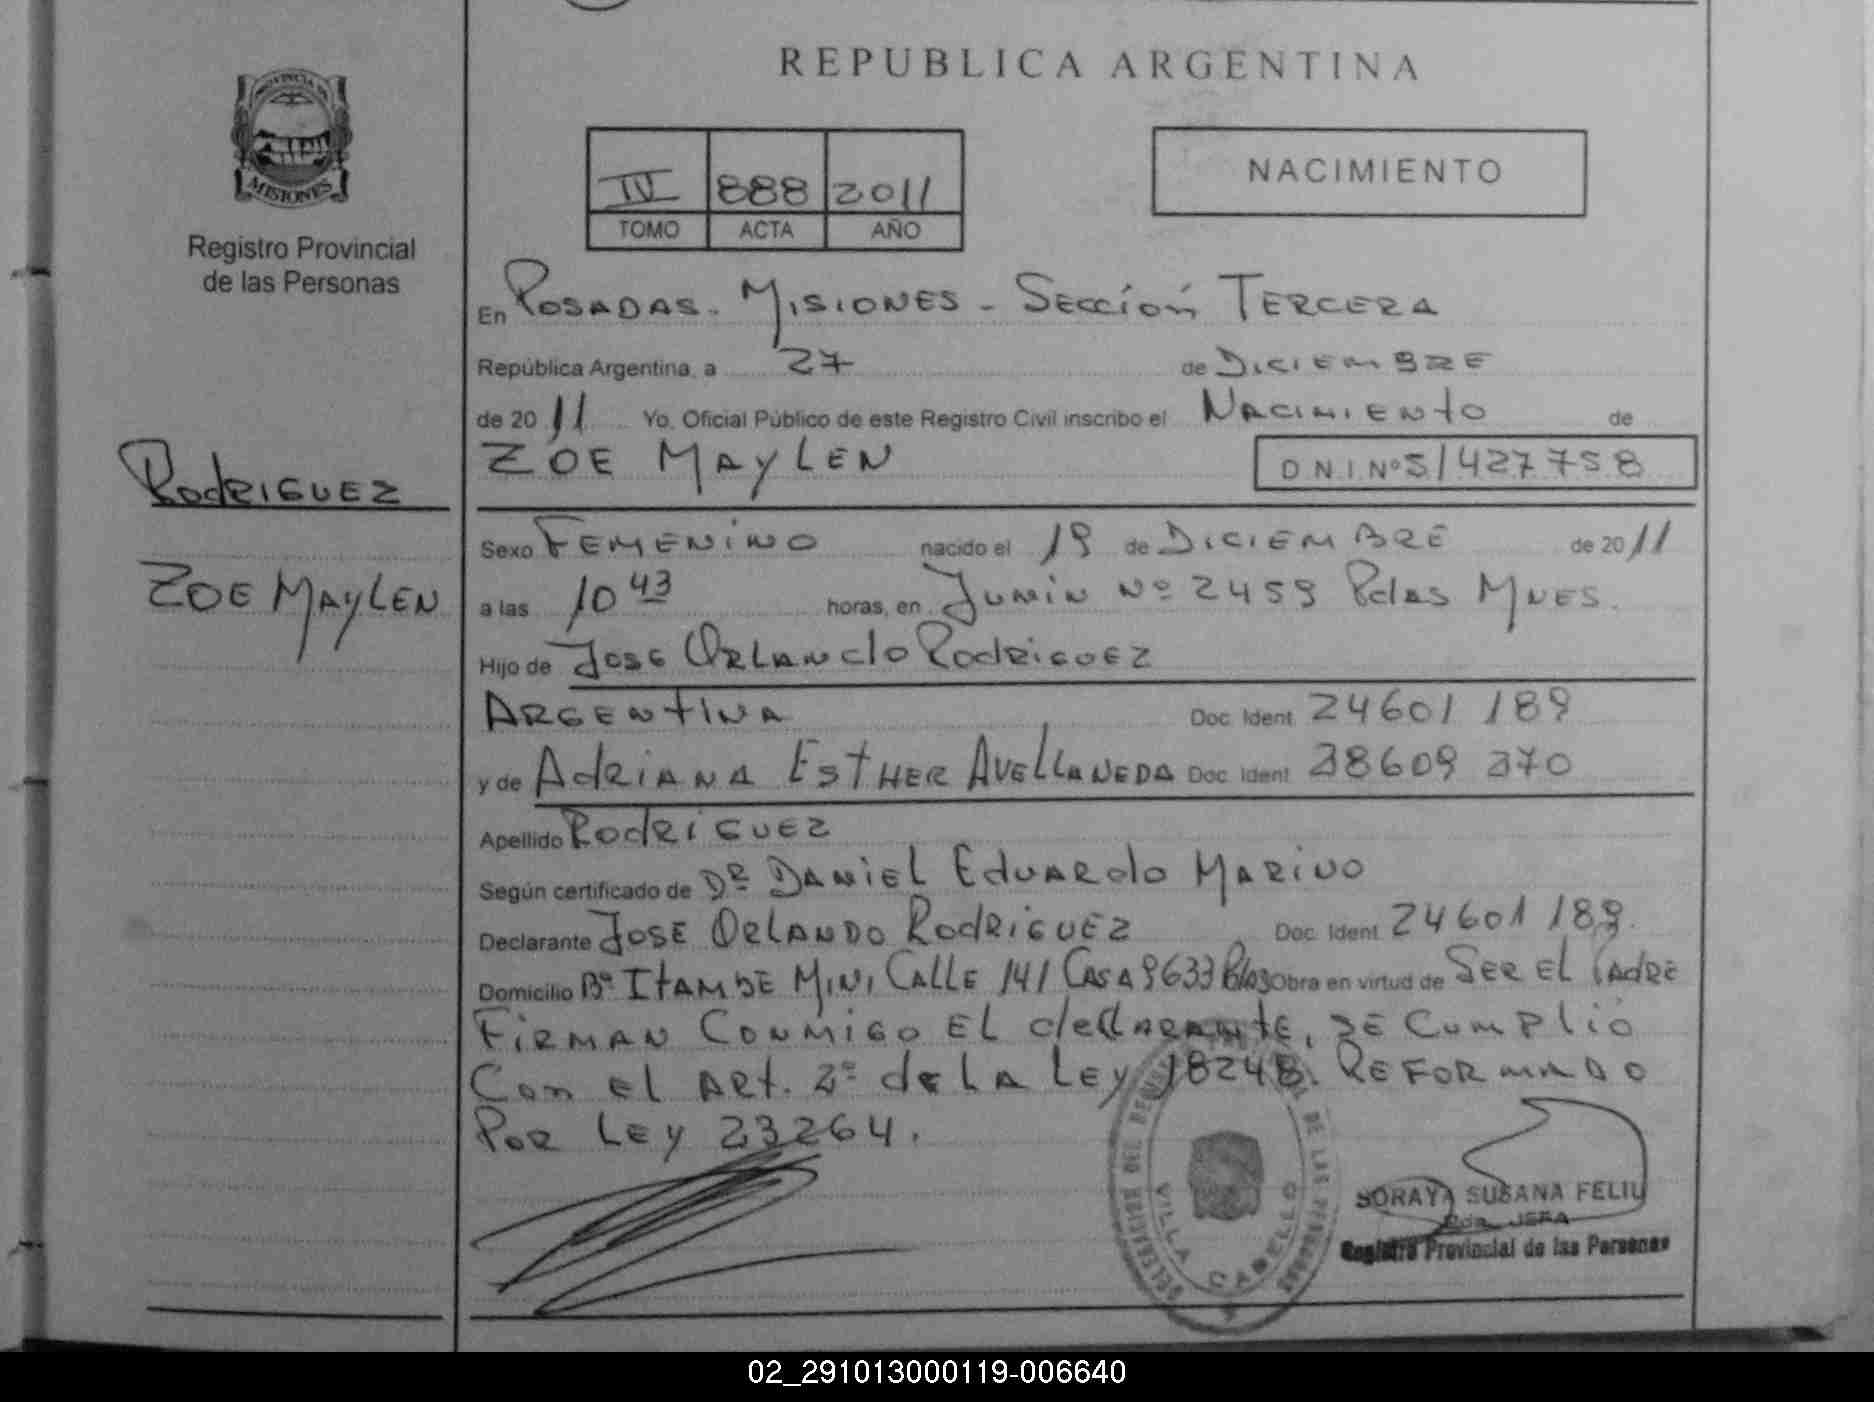 REPUBLICA ARGENTINA
PROVINCIA DE
MISIONES
Registro Provincial
de las Personas
IV 888 2011
TOMO ACTA AÑO
NACIMIENTO
En POSADAS. MISIONES - SECCIÓN TERCERA
República Argentina, a 27 de DICIEMBRE
de 2011 Yo, Oficial Público de este Registro Civil inscribo el NACIMIENTO de
ZOE MAYLEN
D.N.I.Nº 51427758
RODRIGUEZ
ZOE MAYLEN
Sexo FEMENINO nacido el 19 de DICIEMBRE de 2011
a las 10 43 horas, en JUNIN Nº 2459 Pdas MNES.
Hijo de JOSE ORLANDO RODRIGUEZ
ARGENTINA Doc. Ident. 24601 189
y de ADRIANA ESTHER AVELLANEDA Doc. Ident. 38609 370
Apellido RODRIGUEZ
Según certificado de DR DANIEL EDUARDO MARINO
Declarante JOSE ORLANDO RODRIGUEZ Doc. Ident. 24601 189.
Domicilio Bº ITAMBE MINI CALLE 141 CASA 9633 Obra en virtud de SER EL PADRE
FIRMAN CONMIGO EL declARANTE, SE CUMPLIÓ
CON EL ART. 2º de LA LEY 18248. REFORMADO
POR LEY 23264.
VILLA CABELLO
SORAYA SUSANA FELIU
JEFA
Registro Provincial de las Personas
02_291013000119-006640